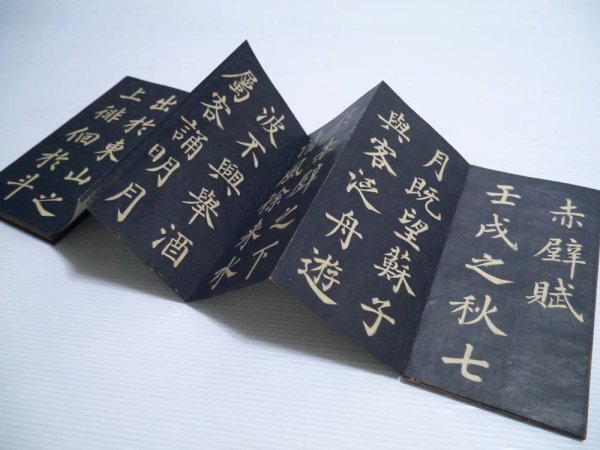 赤壁賦
壬戌之秋七
月既望蘇子
與客泛舟遊
壁之下
風徐來水
波不興舉酒
屬客誦明月
出於東山之
上徘徊於斗